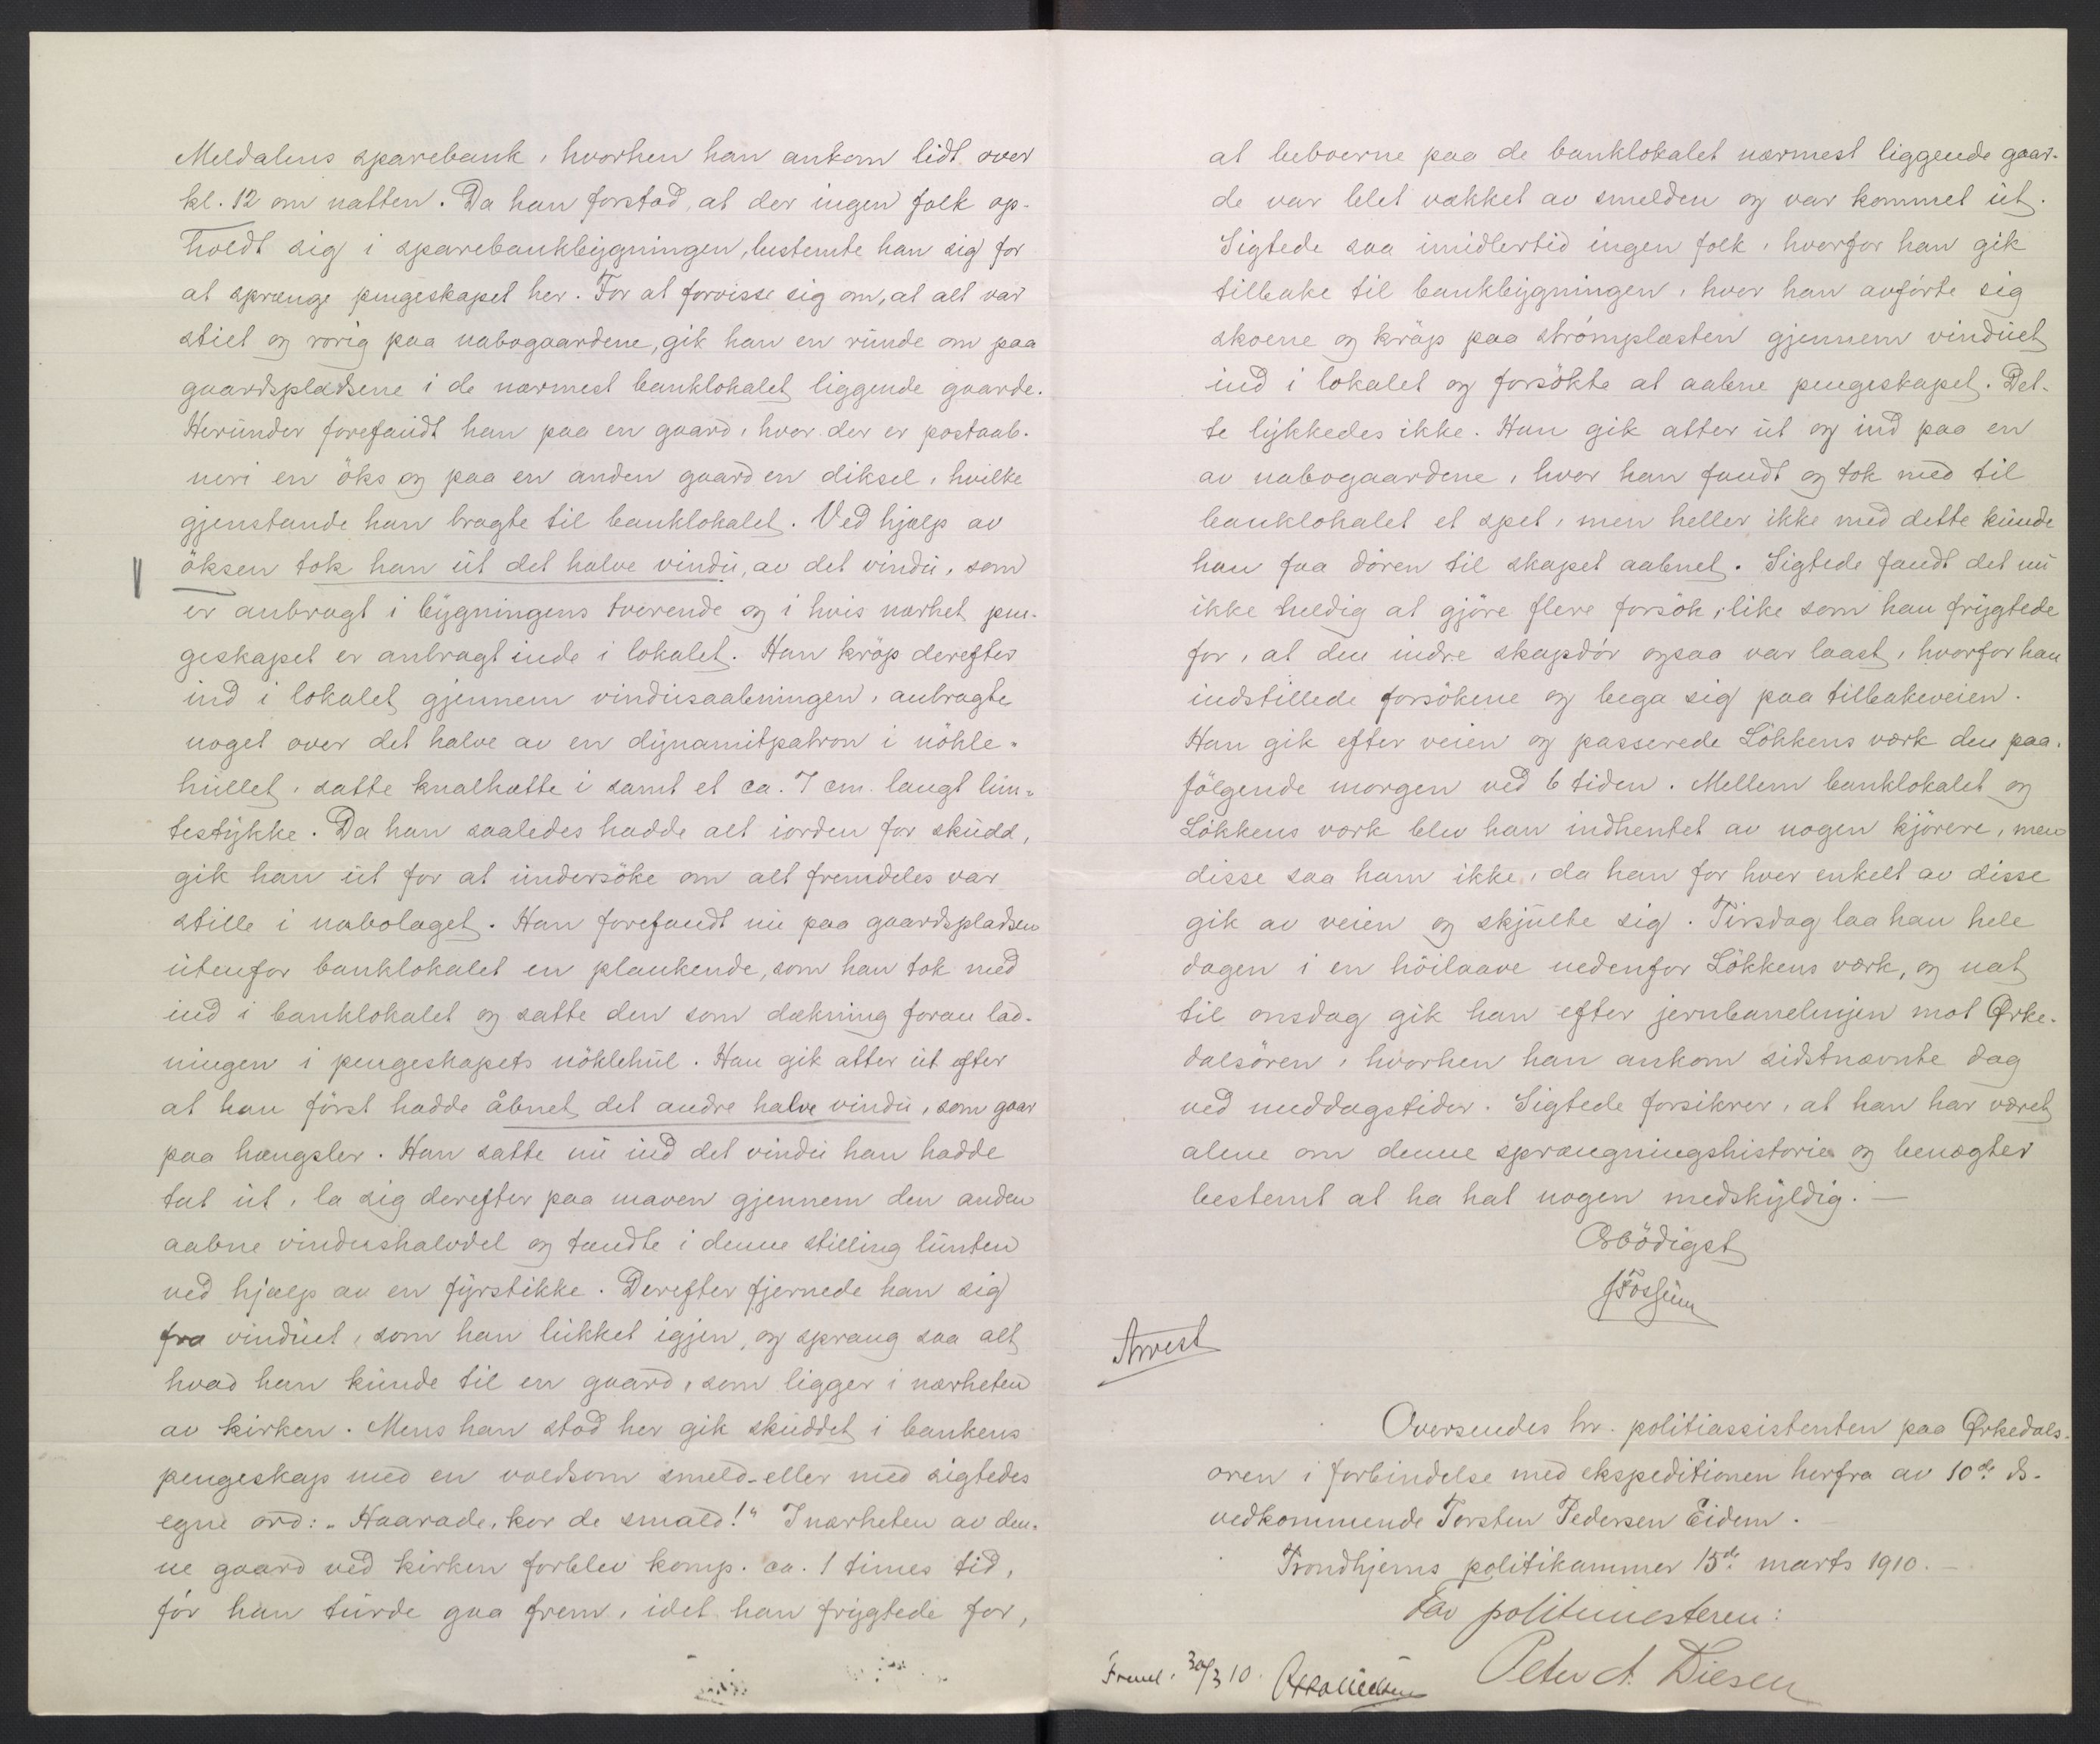 Meldalens sparebank, hvorhen han ankom lidt over
kl. 12 om natten. Da han forstod, at der ingen folk op-
holdt sig i sparebankbygningen, bestemte han sig for
at sprænge pengeskapet her. For at forvisse sig om, at alt var
stilt og rorig paa nabogaardene, gik han en runde om paa
gaardspladsene i de nærmest banklokalet liggende gaarde.
Herunder forefandt han paa en gaard, hvor der er postaab-
neri en öks og paa en anden gaard en diksel, hvilke
gjenstande han bragte til banklokalet. Ved hjælp av
öksen tok han ut det halve vindu, av det vindu, som
er anbragt i bygningens tverende og i hvis nærhet pen-
geskapet er anbragt inde i lokalet. Han kröp derefter
ind i lokalet gjennem vindusaabningen, anbragte
noget over det halve av en dynamitpatron i nökle-
hullet, satte knalhætte i samt et ca. 7 cm. langt lun-
testykke. Da han saaledes hadde alt iorden for skudd,
gik han ut for at undersöke om alt fremdeles var
stille i nabolaget. Han forefandt nu paa gaardspladsen
utenfor banklokalet en plankende, som han tok med
ind i banklokalet og satte den som dækning foran lad-
ningen i pengeskapets nöklehul. Han gik atter ut efter
at han först hadde åbnet det andre halve vindu, som gaar
paa hængsler. Han satte nu ind det vindu han hadde
tat ut, la sig derefter paa maven gjennem den anden
aabne vindushalvdel og tændte i denne stilling lunten
ved hjælp av en fyrstikke. Derefter fjernede han sig
fra vinduet, som han lukket igjen, og sprang saa alt
hvad han kunde til en gaard, som ligger i nærheten
av kirken. Mens han stod her gik skuddet i bankens
pengeskap med en voldsom smeld - eller med sigtedes
egne ord: „Haarade, kor de smald!" I nærheten av den-
ne gaard ved kirken forblev komp. ca. 1 times tid,
för han turde gaa frem, idet han frygtede for,
at beboerne paa de banklokalet nærmest liggende gaar-
de var blet vækket av smelden og var kommet ut.
Sigtede saa imidlertid ingen folk, hvorfor han gik
tilbake til bankbygningen, hvor han avførte sig
skoene og kröp paa strömplæsten gjennem vinduet
ind i lokalet og forsökte at aabne pengeskapet. Det-
te lykkedes ikke. Han gik atter ut og ind paa en
av nabogaardene, hvor han fandt og tok med til
banklokalet et spet, men heller ikke med dette kunde
han faa dören til skapet aabnet. Sigtede fandt det nu
ikke heldig at gjöre flere forsök, like som han frygtede
for, at den indre skapdör ogsaa var laast, hvorfor han
indstillede forsökene og bega sig paa tilbakeveien.
Han gik efter veien og passerede Lökkens værk den paa-
fölgende morgen ved 6 tiden. Mellem banklokalet og
Lökkens værk blev han indhentet av nogen kjörere, men
disse saa ham ikke, da han for hver enkelt av disse
gik av veien og skjulte sig. Tirsdag laa han hele
dagen i en höilaave nedenfor Lökkens værk, og nat
til onsdag gik han efter jernbanelinjen mot Ørke-
dalsören, hvorhen han ankom sidstnævnte dag
ved middagstider. Sigtede forsikrer, at han har været
alene om denne sprængningshistorie og benægter
bestemt at ha hat nogen medskyldig. —
Ærbödigst
Fossum
Arrest
Oversendes hr. politiassistenten paa Ørkedals-
ören i forbindelse med ekspeditionen herfra av 10de ds.
vedkommende Torsten Pedersen Eidem. —
Trondhjems politikammer 15de marts 1910. —
For politimesteren:
Peter A. Diesen
Freml. 30/3 10.